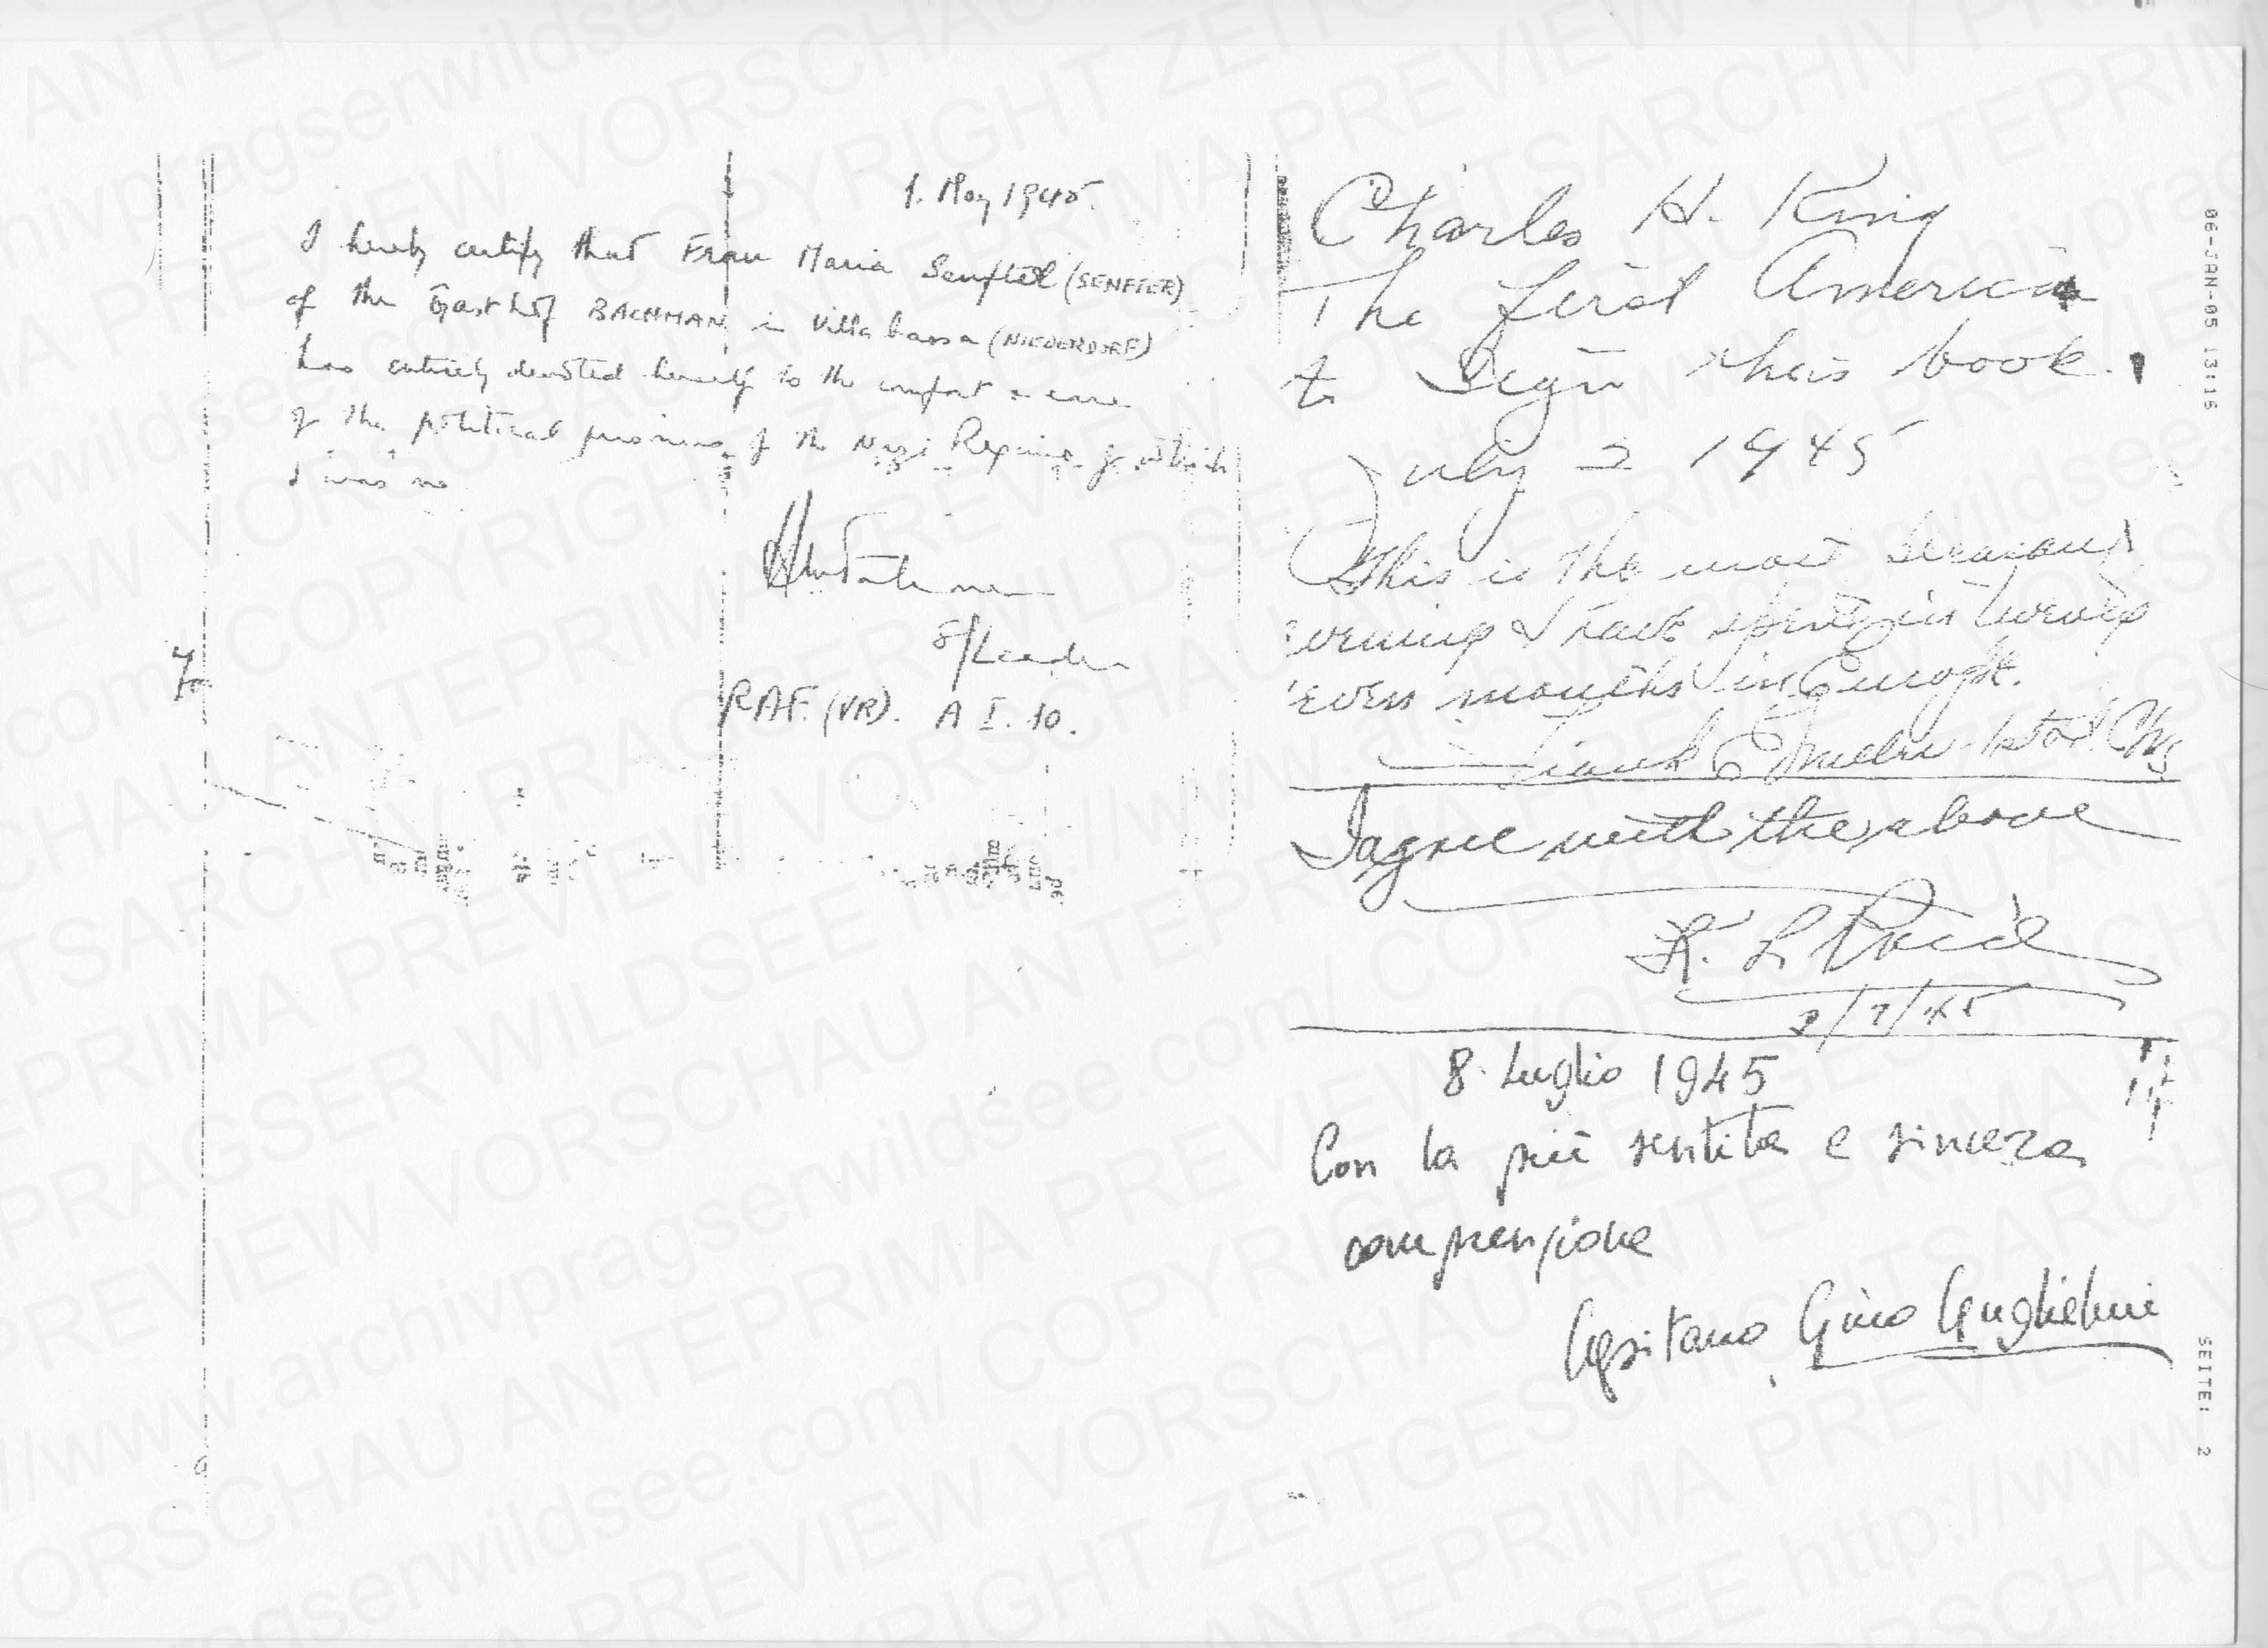 1. May 1945.
I hereby certify that Frau Maria (SENFTER)
of the Gasthof BACHMAN in Villabassa (NIEDERDORF)
has entirely devoted herself to the comfort & care
of the political prisoners of the Nazi Regime of which
I was
S/Leader
RAF. (VR). A I. 10.
Charles H. King
The first American
to Sign this book.
July 2 1945
This is the most pleasant
evening I have spent in twenty
seven months in Europe.
Frank
I agree with the above
2/7/45
8. Luglio 1945
Con la più sentita e sincera
comprensione
Capitano Gino Guglielmi
06-JAN-05 13:16
SEITE: 2
ZEITGESCHICHTSARCHIV PRAGSER WILDSEE http://www.archivpragserwildsee.com/ COPYRIGHT
ANTEPRIMA PREVIEW VORSCHAU